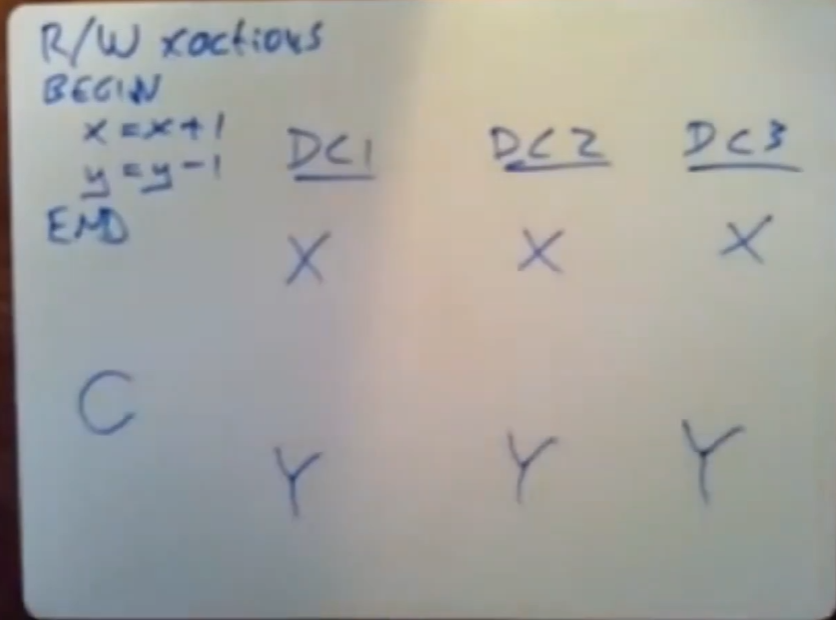 R/W xactions
BEGIN
x = x + 1
y = y - 1
END
DC1 DC2 DC3
X X X
C
Y Y Y